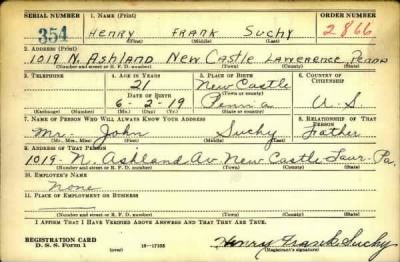 SERIAL NUMBER 1. NAME (Print) ORDER NUMBER
354 HENRY FRANK SUCHY 2866
(First) (Middle) (Last)
2. ADDRESS (Print)
1019 N. ASHLAND NEW CASTLE LAWERENCE PENNA
(Number and street or R. F. D. number) (Town) (County) (State)
3. TELEPHONE 4. AGE IN YEARS 5. PLACE OF BIRTH 6. COUNTRY OF CITIZENSHIP
21 New Castle
DATE OF BIRTH (Town or county)
6-2-19 Penn'a U.S.
(Exchange) (Number) (Mo.) (Day) (Yr.) (State or country)
7. NAME OF PERSON WHO WILL ALWAYS KNOW YOUR ADDRESS 8. RELATIONSHIP OF THAT PERSON
Mr. John Suchy Father
(Mr., Mrs., Miss) (First) (Middle) (Last)
9. ADDRESS OF THAT PERSON
1019- N. Ashland Av New Castle Laur. Pa.
(Number and street or R. F. D. number) (Town) (County) (State)
10. EMPLOYER'S NAME
None
11. PLACE OF EMPLOYMENT OR BUSINESS
(Number and street or R. F. D. number) (Town) (County) (State)
I AFFIRM THAT I HAVE VERIFIED ABOVE ANSWERS AND THAT THEY ARE TRUE.
REGISTRATION CARD
D. S. S. Form 1 (over) 16-17105 Henry Frank Suchy
(Registrant's signature)